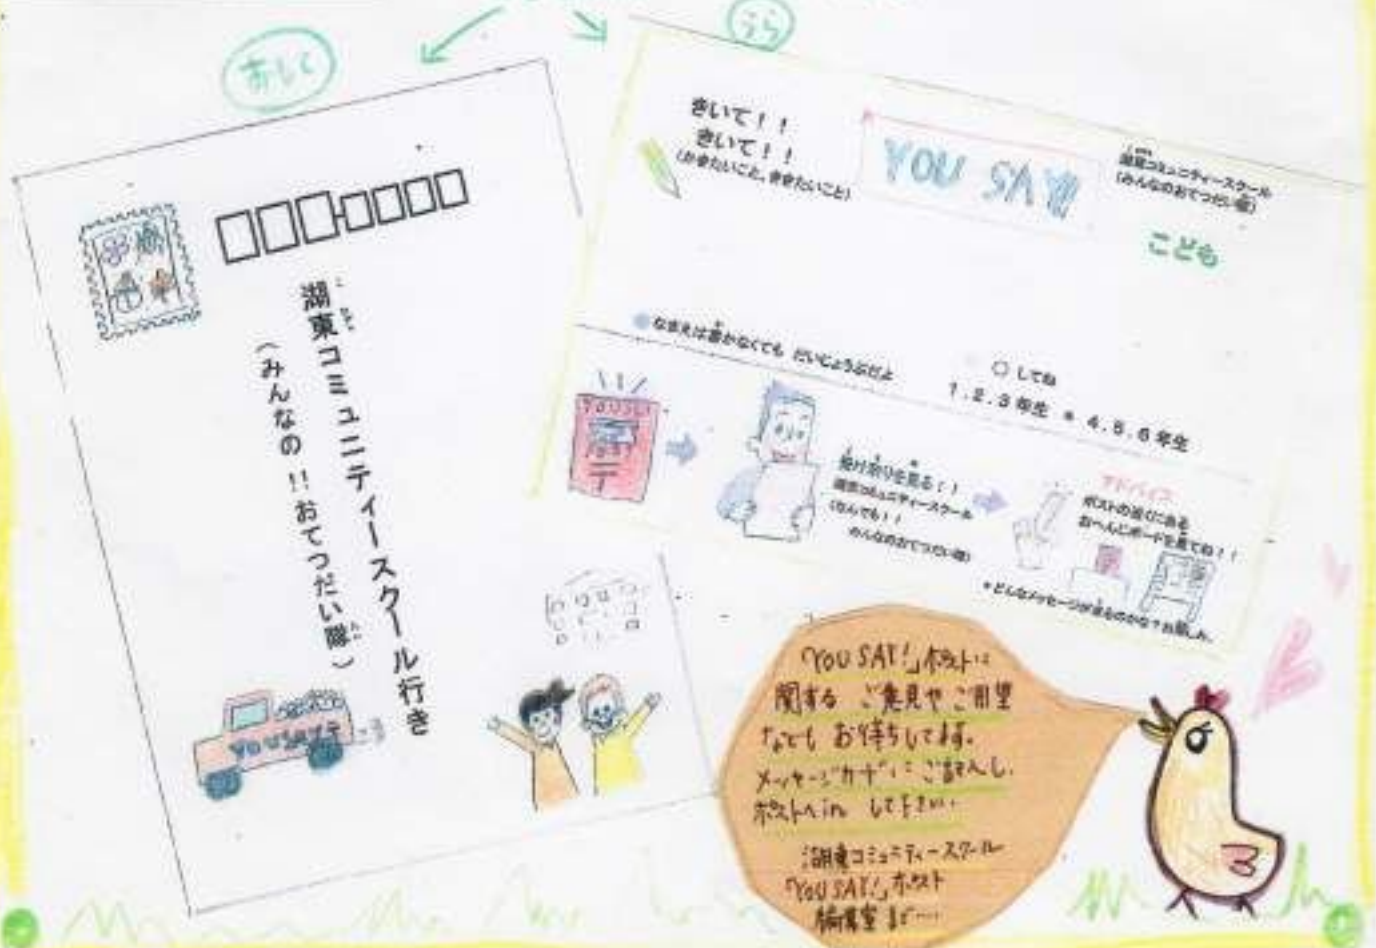 おもて
うら
湖東コミュニティースクール行き
(みんなの!!おてつだい隊)
YOUSAY
きいて!!
きいて!!
(かきたいこと、ききたいこと)
YOU SAY
湖東コミュニティースクール
(みんなのおてつだい隊)
こども
なまえは書かなくても だいじょうぶだよ
○してね
1.2.3年生 * 4.5.6年生
YOUSAY
POST
〒
受け取りを見る!!
湖東コミュニティースクール
(なんでも!!
みんなのおてつだい隊)
アドバイス
ポストの近くにある
おへんじボードを見てね!!
*どんなメッセージがあるのかな?お楽しみ
「YOU SAY!」ポストに
関する ご意見やご用望
なども お待ちしてます。
メッセージカードにご記入し、
ポストへin して下さい。
湖東コミュニティースクール
「YOU SAY!」ポスト
編集室まで…